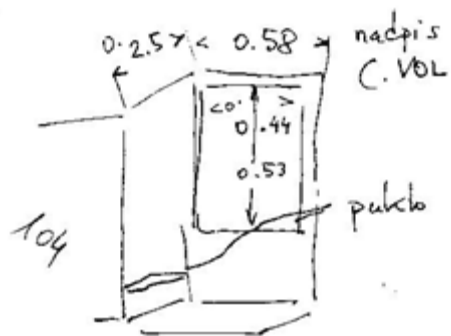 0.25 0.58 nadpis
C. VOL
<0. >
0.44
0.53
puklo
104